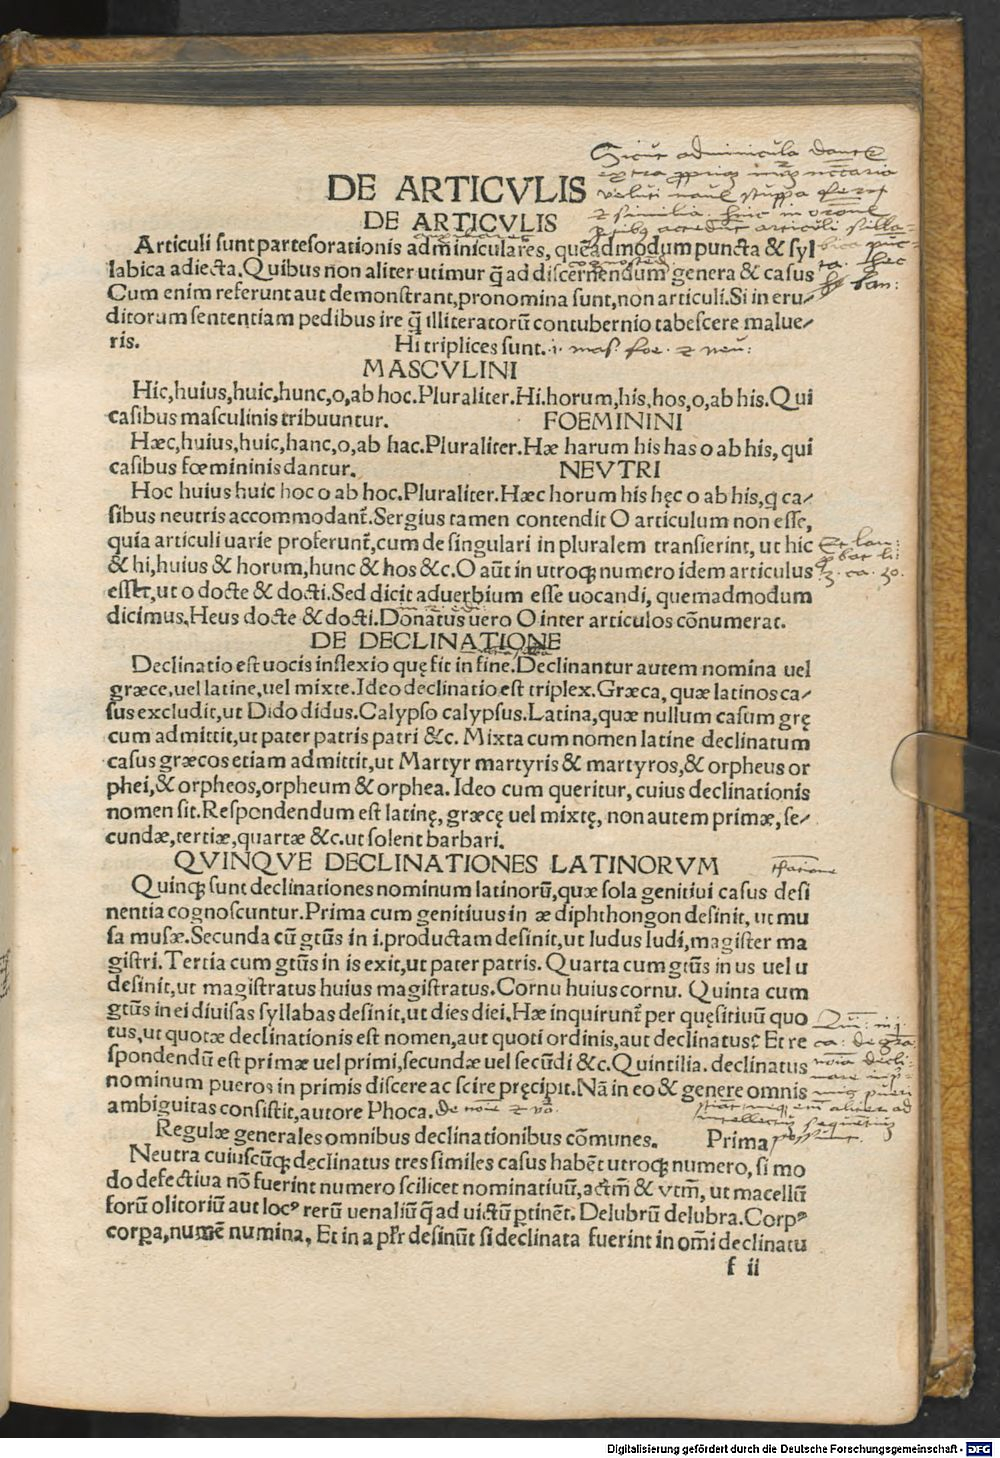 DE ARTICVLIS
DE ARTICVLIS
Sicut adminicula
Articuli sunt partes orationis adminiculares, quēadmodum puncta & syl
labica adiecta. Quibus non aliter utimur q̄ ad discernendum genera & casus
Cum enim referunt aut demonstrant, pronomina sunt, non articuli. Si in eru⸗
ditorum sententiam pedibus ire q̄ illiteratorū contubernio tabescere malue⸗
ris. Hi triplices sunt. .i. mas. foe. & neu:
MASCVLINI
Hic, huius, huic, hunc, o, ab hoc. Pluraliter. Hi. horum, his, hos, o, ab his. Qui
casibus masculinis tribuuntur. FOEMININI
Hæc, huius, huic, hanc, o, ab hac. Pluraliter. Hæ harum his has o ab his, qui
casibus fœmininis dantur. NEVTRI
Hoc huius huic hoc o ab hoc. Pluraliter. Hæc horum his hęc o ab his, q ca⸗
sibus neutris accommodant̄. Sergius tamen contendit O articulum non esse,
quia articuli uarie proferunt̄, cum de singulari in pluralem transierint, ut hic
& hi, huius & horum, hunc & hos &c. O aūt in utroqꝫ numero idem articulus
esset, ut o docte & docti. Sed dicit aduerbium esse uocandi, quemadmodum
dicimus. Heus docte & docti. Donatus uero O inter articulos cōnumerat.
DE DECLINATIONE
Declinatio est uocis inflexio quę fit in fine. Declinantur autem nomina uel
græce, uel latine, uel mixte. Ideo declinatio est triplex. Græca, quæ latinos ca⸗
sus excludit, ut Dido didus. Calypso calypsus. Latina, quæ nullum casum grę
cum admittit, ut pater patris patri &c. Mixta cum nomen latine declinatum
casus græcos etiam admittit, ut Martyr martyris & martyros, & orpheus or
phei, & orpheos, orpheum & orphea. Ideo cum queritur, cuius declinationis
nomen sit. Respondendum est latinę, græcę uel mixtę, non autem primæ, se⸗
cundæ, tertiæ, quartæ &c. ut solent barbari.
QVINQVE DECLINATIONES LATINORVM
Quinqꝫ sunt declinationes nominum latinorū, quæ sola genitiui casus desi
nentia cognoscuntur. Prima cum genitiuus in æ diphthongon desinit, ut mu
sa musæ. Secunda cū gtūs in i. productam desinit, ut ludus ludi, magister ma
gistri. Tertia cum gtūs in is exit, ut pater patris. Quarta cum gtūs in us uel u
desinit, ut magistratus huius magistratus. Cornu huius cornu. Quinta cum
gtūs in ei diuisas syllabas desinit, ut dies diei. Hæ inquirunt̄ per quęsitiuū quo
tus, ut quotæ declinationis est nomen, aut quoti ordinis, aut declinatus? Et re
spondendū est primæ uel primi, secundæ uel secūdi &c. Quintilia. declinatus
nominum pueros in primis discere ac scire pręcipit. Nā in eo & genere omnis
ambiguitas consistit, autore Phoca.
Regulæ generales omnibus declinationibus cōmunes. Prima
Neutra cuiuscūqꝫ declinatus tres similes casus habēt utroqꝫ numero, si mo
do defectiua nō fuerint numero scilicet nominatiuū, actm̄ & vtm̄, ut macellū
forū olitoriū aut locꝰ rerū uenaliū q̄ ad uictū ꝑtinēt. Delubrū delubra. Corpꝰ
corpa, numē numina. Et in a plr̄ desinūt si declinata fuerint in om̄i declinatu
f ii
Digitalisierung gefördert durch die Deutsche Forschungsgemeinschaft - DFG